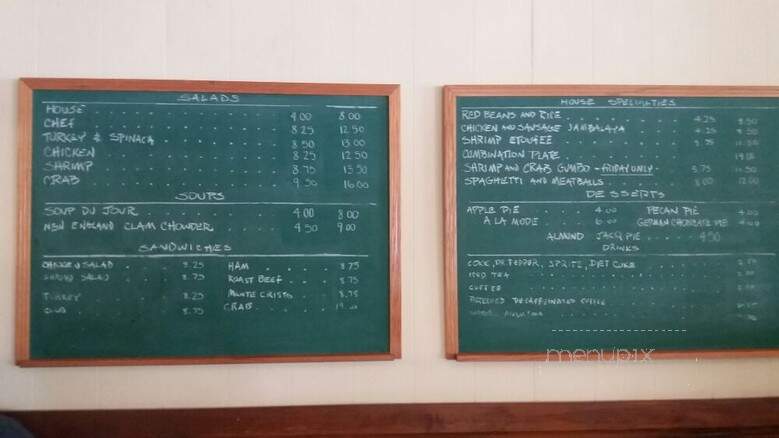 SALADS
HOUSE 4.00 8.00
CHEF 8.25 12.50
TURKEY & SPINACH 8.50 13.00
CHICKEN 8.25 12.50
SHRIMP 8.75 13.50
CRAB 9.50 16.00
SOUPS
SOUP DU JOUR 4.00 8.00
NEW ENGLAND CLAM CHOWDER 4.50 9.00
SANDWICHES
CHICKEN SALAD 8.25 HAM 8.75
SHRIMP SALAD 8.75 ROAST BEEF 8.75
TURKEY 8.25 MONTE CRISTO 8.75
CLUB 8.75 CRAB
HOUSE SPECIALTIES
RED BEANS AND RICE 4.25 8.50
CHICKEN AND SAUSAGE JAMBALAYA 4.25 8.50
SHRIMP ETOUFEE 5.75 11.50
COMBINATION PLATE
SHRIMP AND CRAB GUMBO - FRIDAY ONLY 5.75 11.50
SPAGHETTI AND MEATBALLS 8.00 12.00
DESSERTS
APPLE PIE 4.00 PECAN PIE 4.00
A LA MODE 6.00 GERMAN CHOCOLATE PIE 4.00
ALMOND JACQ PIE 4.50
DRINKS
COKE, DR PEPPER, SPRITE, DIET COKE
ICED TEA
COFFEE
BREWED DECAFFEINATED COFFEE
menupix